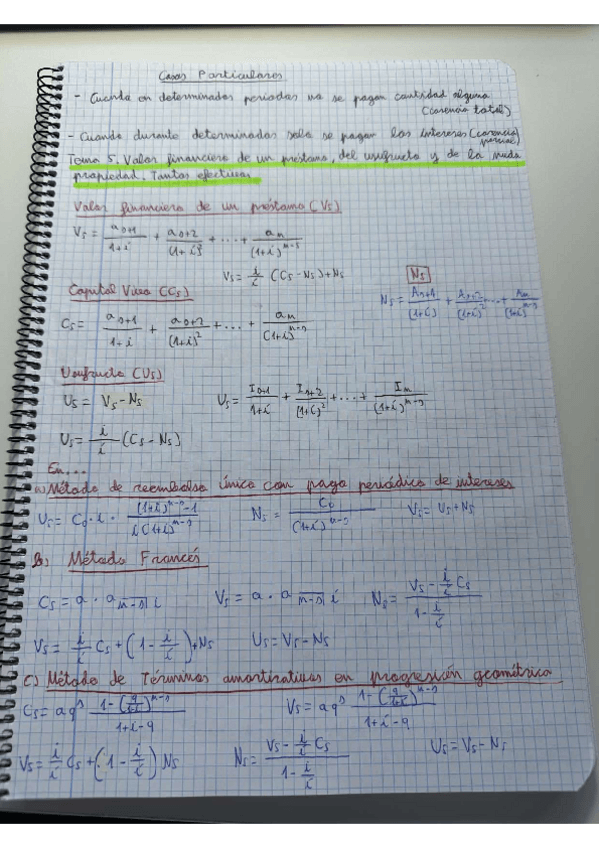 Casos Particulares
- Cuando en determinados periodos no se pagan cantidad alguna
(carencia total)
- Cuando durante determinados solo se pagan los intereses (carencia
parcial)
Tema 5. Valor financiero de un préstamo, del usufructo y de la nuda
propiedad. Tantos efectivos
Valor financiero de un préstamo (Vs)
Vs = as+1/1+i + as+2/(1+i)² + ... + an/(1+i)^n-s
Vs = i/i (Cs - Ns) + Ns
Ns
Capital Vivo (Cs)
Ns = As+1/(1+i) + As+2/(1+i)² ... + An/(1+i)^n-s
Cs = as+1/1+i + as+2/(1+i)² + ... + an/(1+i)^n-s
Usufructo (Us)
Us = Vs - Ns
Us = Is+1/1+i + Is+2/(1+i)² + ... + In/(1+i)^n-s
Us = i/i (Cs - Ns)
En...
a) Método de reembolso único con pago periódico de intereses
Us = C0 · i · (1+i)^n-s - 1/i(1+i)^n-s
Ns = C0/(1+i)^n-s
Vs = Us + Ns
b) Método Francés
Cs = a · a n-s| i
Vs = a · a n-s| i
Ns = Vs - i/i Cs/1 - i/i
Vs = i/i Cs + (1 - i/i) + Ns
Us = Vs - Ns
C) Método de Términos amortizativos en progresión geométrica
Cs = aq^s 1-(q/1+i)^n-s/1+i-q
Vs = aq^s 1-(q/1+i)^n-s/1+i-q
Vs = i/i Cs + (1 - i/i) Ns
Ns = Vs - i/i Cs/1 - i/i
Us = Vs - Ns